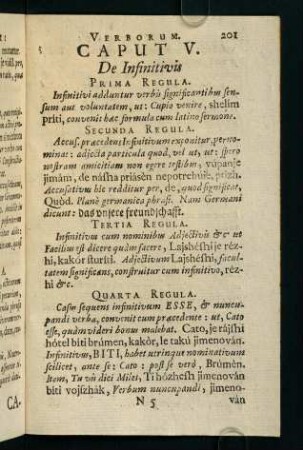 VERBORUM. 201
CAPUT V.
De Infinitivis
PRIMA REGULA.
Infinitivi adduntur verbis significantibus sen-
sum aut voluntatem, ut: Cupio venire, shelim
priti, convenit hæc formula cum latino sermone.
SECUNDA REGULA.
Accus. præcedens Infinitivum exponitur, per no-
minat: adjectâ particulâ quod, vel ut, ut: spero
nostram amicitiam non egere testibus, vupanje
jimam, de násha priàsèn nepotrehuje, prizh.
Accusativus hic redditur per, de, quod significat,
Quòd. Planè germanica phrasi. Nam Germani
dicunt: das vnjere freundschafft.
TERTIA REGULA.
Infinitivus cum nominibus Adjectivis &c ut
Facilius est dicere quàm facere, Lajshéshi je réz-
hi, kakór sturiti. Adjectivum Lajshéshi, facul-
tatem significans, construitur cum infinitivo, réz-
hi &c.
QUARTA REGULA.
Casus sequens infinitivum ESSE, & nuncu-
pandi verba, convenit cum præcedente: ut, Cato
esse, quàm videri bonus malebat. Cato, je rájshi
hótel biti brúmen, kakòr, le takú jimenován.
Infinitivum, BITI, habet utrinque nominativum
scilicet, ante se: Cato: post se verò, Brúmen.
Item, Tu vis dici Miles, Ti hózhesh jimenován
biti vojszhák, Verbum nuncupandi, jimeno-
N 5 ván